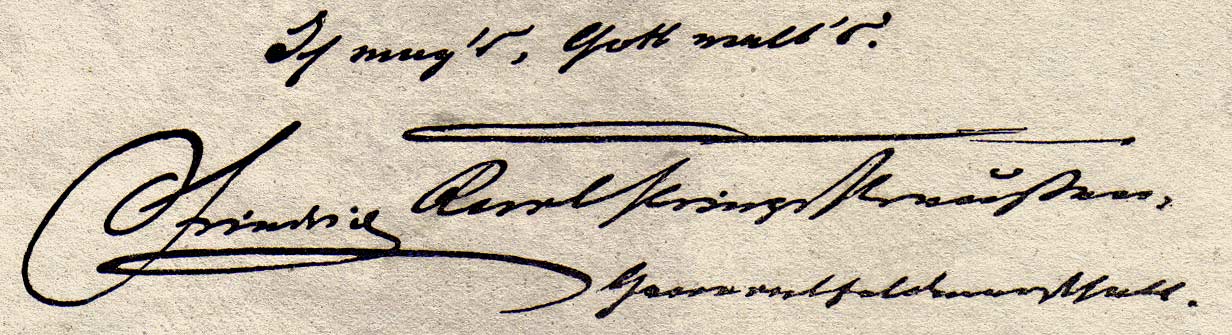 Ich wag's, Gott walt's.
Friedrich Karl Prinz v Preußen,
Generalfeldmarschall.